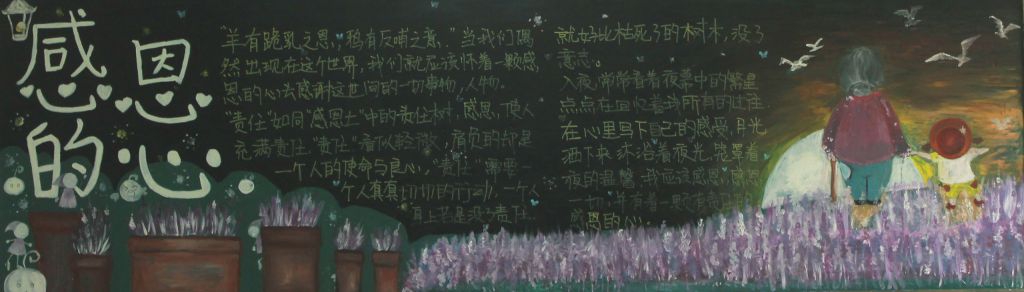 感恩
的心
"羊有跪乳之恩,鸦有反哺之意。"当我们偶
然出现在这个世界,我们就应该怀着一颗感
恩的心去感谢这世间的一切事物,人物。
"责任"如同"感恩"中的责任树,感恩,使人
充满责任,"责任"看似轻淡,肩负的却是
一个人的使命与良心,"责任"需要
个人真真切切的行动,一个人
肩上若是没责任
就好比枯死了的树木,没了
意志。
入夜,常常看着夜幕中的繁星
点点在回忆着我所有的过往
在心里写下自己的感受,月光
洒下来,沐浴着夜光,笼罩着
夜的
一切,
感恩的心